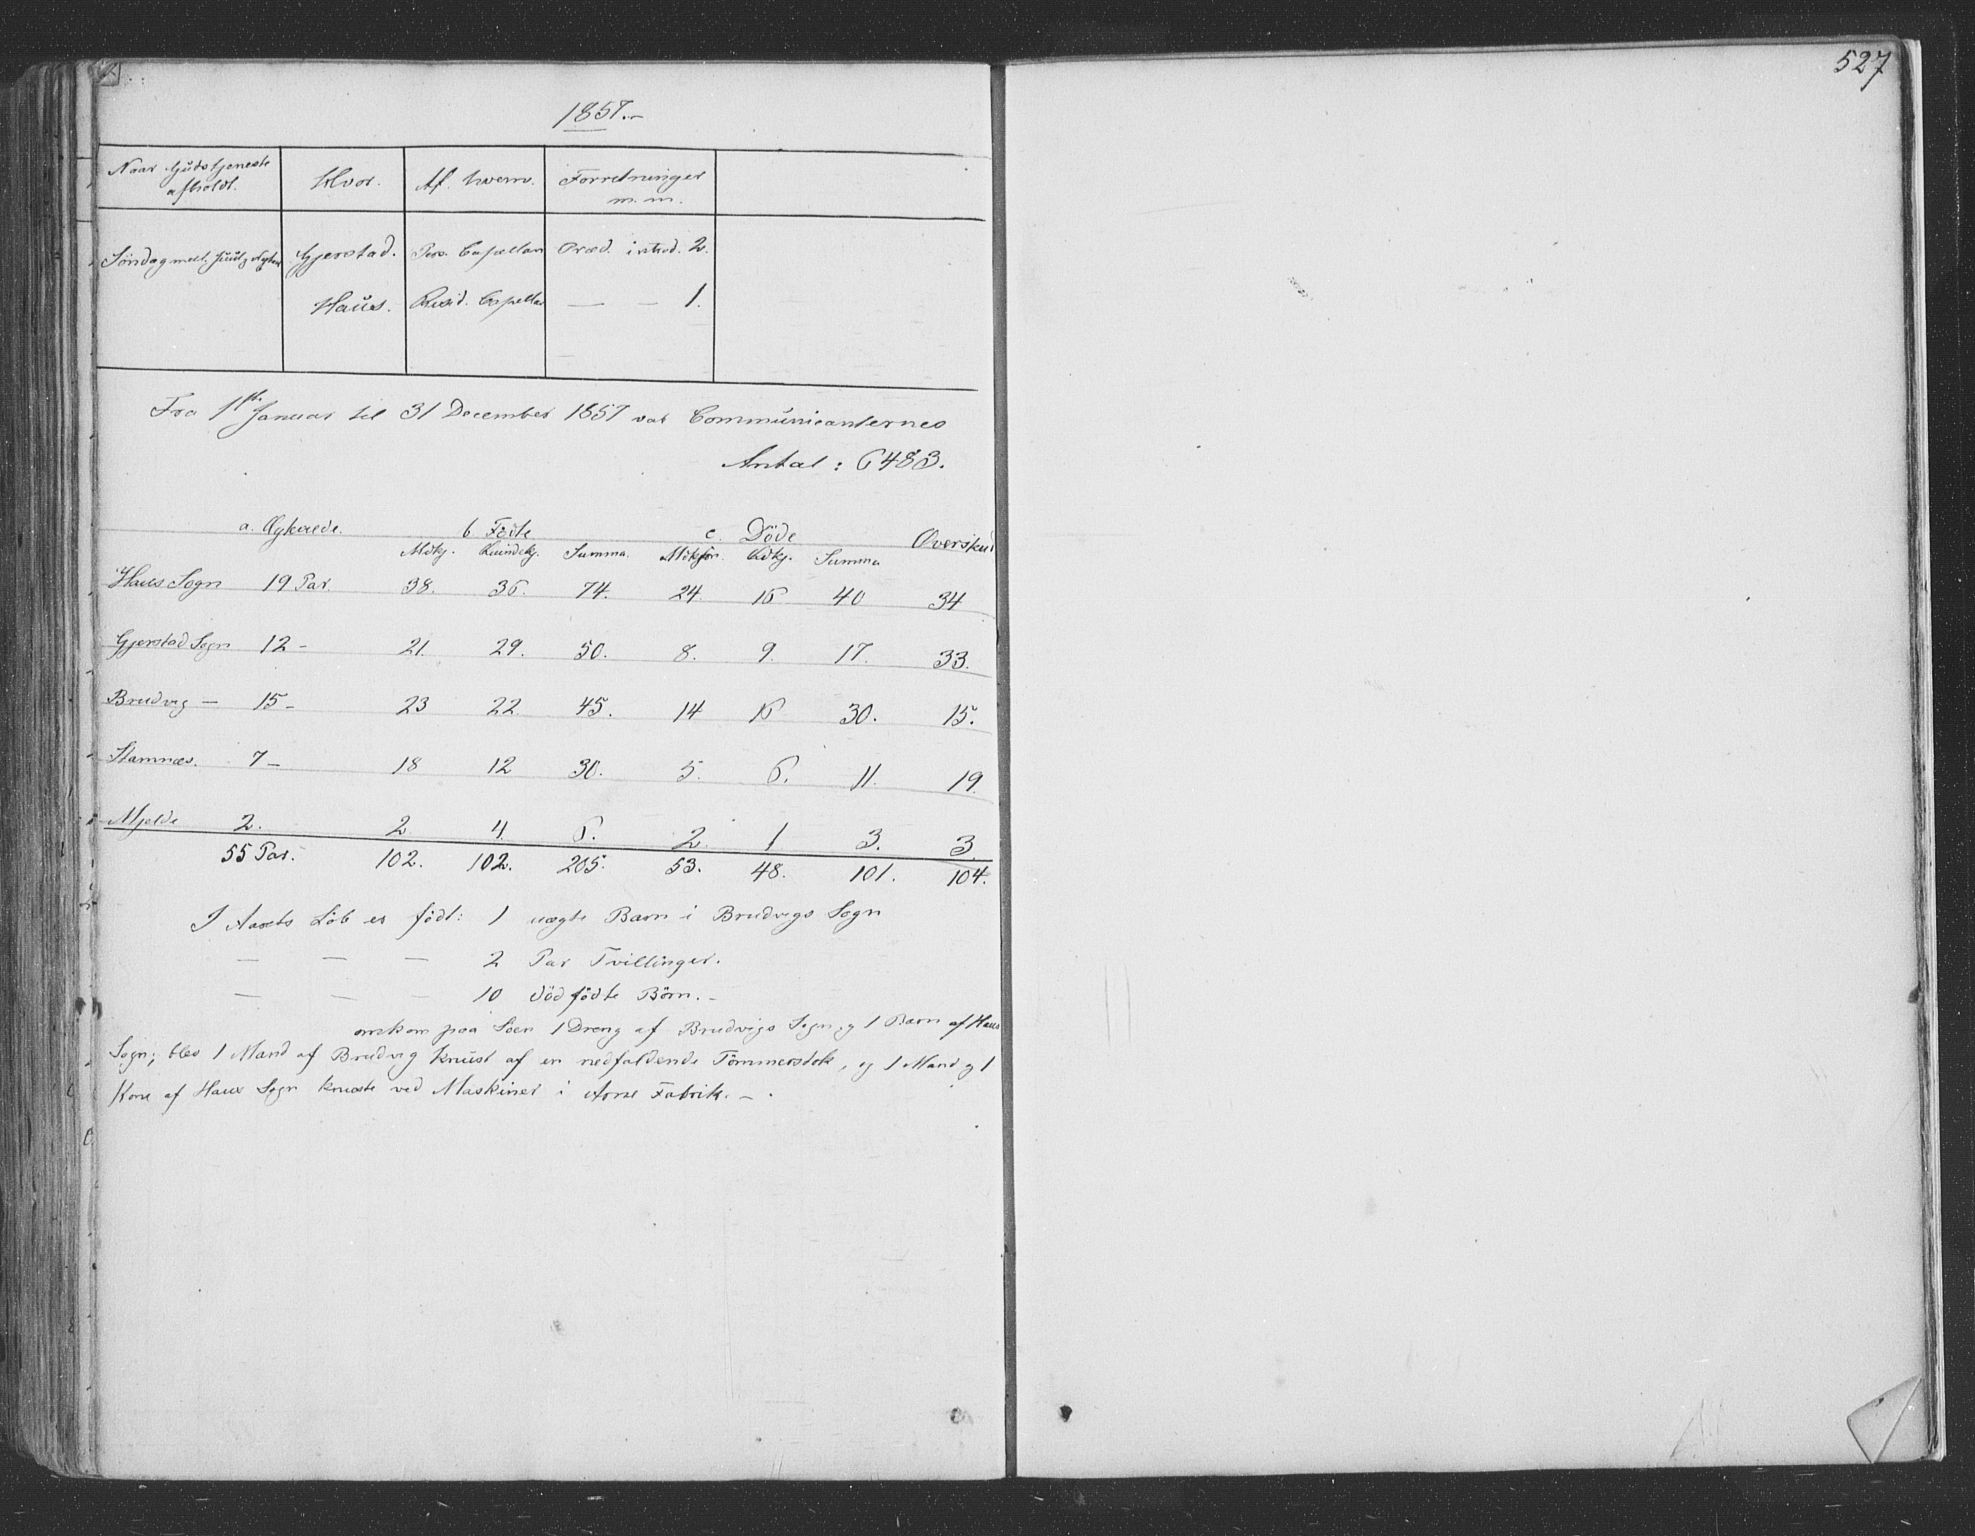 527
1857.-
Naar Gudstjeneste afholdt. Hvor. Af hvem. Forretninger m. m.
Søndag mell. Juul og Nytaar Gjerstad. Pers. Capellan Ords. introd. 2.
Haus. Resid. Capellan — — 1.
Fra 1ste Januar til 31 December 1857 var Communicanternes
Antal: 6483.
a. Ægteviede. b Födte c. Döde Overskud
Mdkj. Quindekj. Summa. Mdkjön. Qdkj. Summa
Haus Sogn 19 Par. 38. 36. 74. 24. 16 40 34
Gjerstad Sogn 12 - 21. 29. 50. 8. 9. 17. 33.
Brudvig — 15 - 23 22 45. 14 16 30. 15.
Stamnæs. 7 - 18 12 30. 5. 6. 11. 19.
Mjelde 2. 2 4. 6. 2. 1 3. 3.
55 Par. 102. 102. 205. 53. 48. 101. 104.
I Aarets Löb er födt: 1 uægte Barn i Brudvigs Sogn
— — — 2 Par Tvillinger.
— — — 10 dödfödte Börn. -
omkom paa Söen 1 Dreng af Brudvigs Sogn, og 1 Barn af Haus
Sogn; blev 1 Mand af Brudvig knust af en nedfaldende Tömmerstok, og 1 Mand og 1
Kone af Haus Sogn knuste ved Maskiner i Arne Fabrik. -